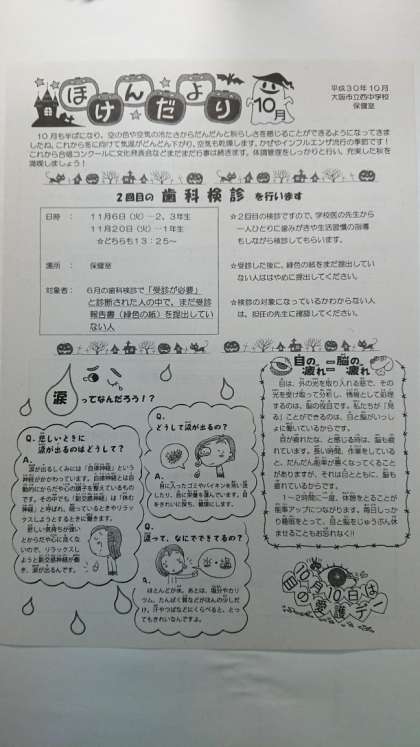 ほけんだより
10月
平成30年10月
大阪市立西中学校
保健室
10月も半ばになり、空の色や空気の冷たさからだんだんと秋らしさを感じることができるようになってきま
したね。これから冬に向けて気温がどんどん下がり、空気も乾燥します。かぜやインフルエンザ流行の季節です！
これから合唱コンクールに文化発表会などまだまだ行事は続きます。体調管理をしっかりと行い、充実した秋を
満喫しましょう！
2回目の 歯科検診 を行います
日時： 11月6日（火）…2、3年生
11月20日（火）…1年生
☆どちらも13：25～
場所： 保健室
対象者： 6月の歯科検診で「受診が必要」
と診断された人の中で、まだ受診
報告書（緑色の紙）を提出してい
ない人
☆2回目の検診ですので、学校医の先生から
一人ひとりに歯みがきや生活習慣の指導
もしながら検診してもらいます。
☆受診した後に、緑色の紙をまだ提出してい
ない人ははやめに提出してください。
☆検診の対象になっているかわからない人
は、担任の先生に確認してください。
涙ってなんだろう！？
Q.
悲しいときに
涙が出るのはどうして？
A.
涙が出るしくみには「自律神経」という
神経がかかわっています。自律神経とは自
動的にからだや心の調子を整えているもの
です。その中でも「副交感神経」は「休む
神経」と呼ばれ、眠っているときやリラッ
クスしようとするときに働きます。
悲しい気持ちが強い
とからだや心に良くな
いので、リラックスし
ようと副交感神経が働
き、涙が出るんです。
Q.
どうして涙が出るの？
A.
目に入ったゴミやバイキンを洗い流
したり、目に栄養を運んでいます。目
をきれいに保ち、健康にします。
Q.
涙って、なにでできてるの？
A.
ほとんどが水。あとは、塩分やカリ
ウム、たんぱく質などがほんの少しだ
け。汗やつばなどにくらべると、とっ
てもきれいなんですよ。
目の疲れ＝脳の疲れ
目は、外の光を取り入れる窓で、その
光を受け取って分析し、情報として処理
するのは、脳の役目です。私たちが「見
る」ことができるのは、目と脳がいっし
ょに働いているからです。
目が疲れたな、と感じる時は、脳も疲
れています。長い時間、作業をしている
と、だんだん能率が悪くなってくること
がありますが、それは目とともに、脳も
疲れているからです。
1～2時間に一度、休憩をとることが
能率アップにつながります。毎日しっか
り睡眠をとって、目と脳をじゅうぶん休
ませることもお忘れなく!!
10月10日は
目の愛護デー